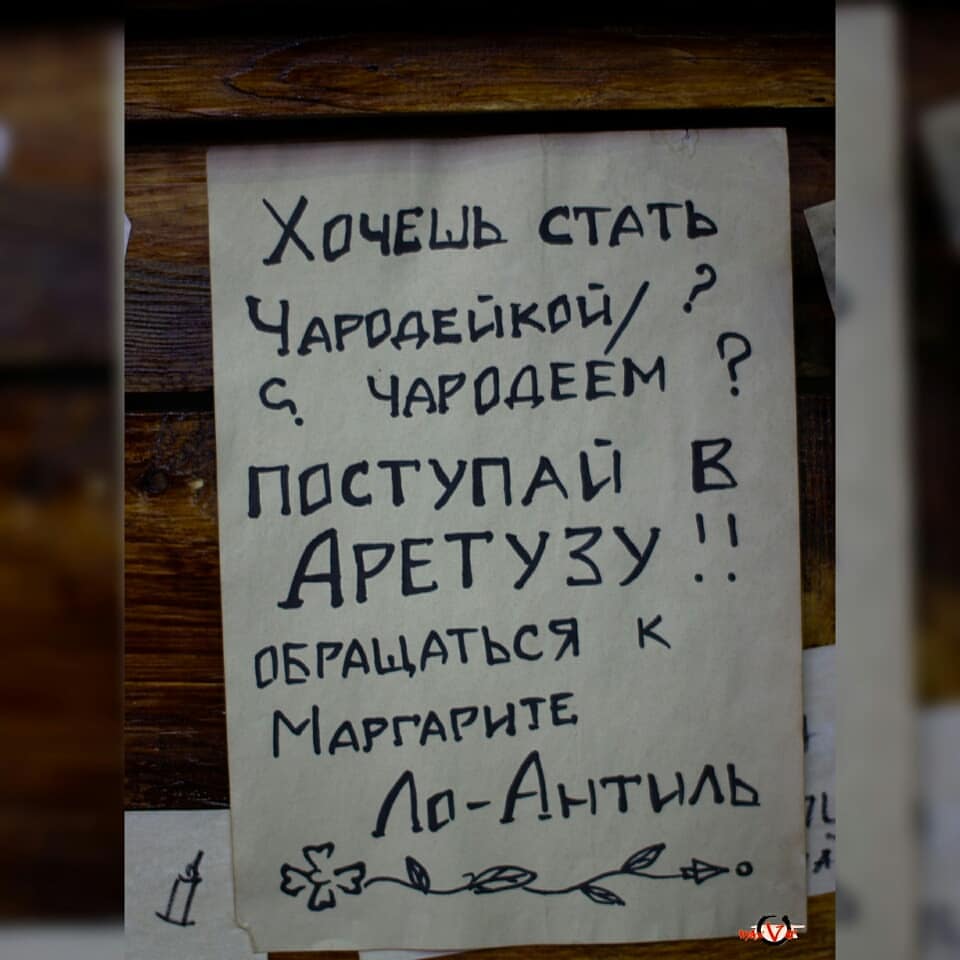 Хочешь стать
Чародейкой/ ?
с чародеем ?
поступай в
Аретузу !!
обращаться к
Маргарите
Ло-Антиль